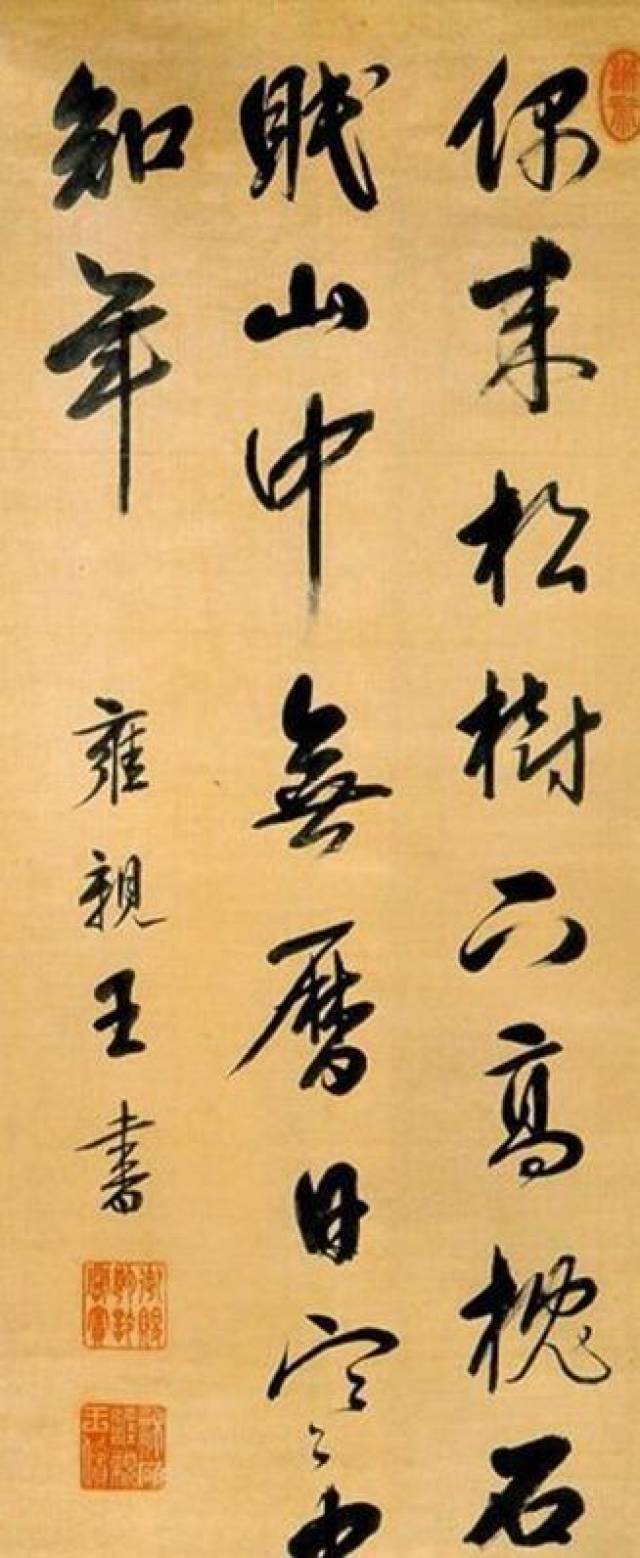 偶来松樹下高枕石
眠山中無曆日寒
知年
雍親王書